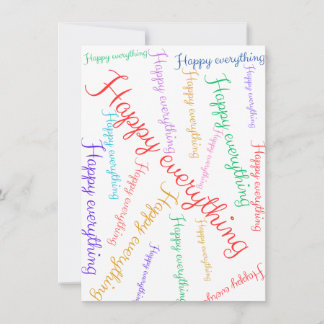 Happy everything
Happy everything
Happy everything
Happy everything
Happy everything
Happy everything
Happy everything
Happy everything
Happy everything
Happy everything
Happy everything
Happy everything
Happy everything
Happy everything
Happy everything
Happy everything
Happy everything
Happy everything
Happy everything